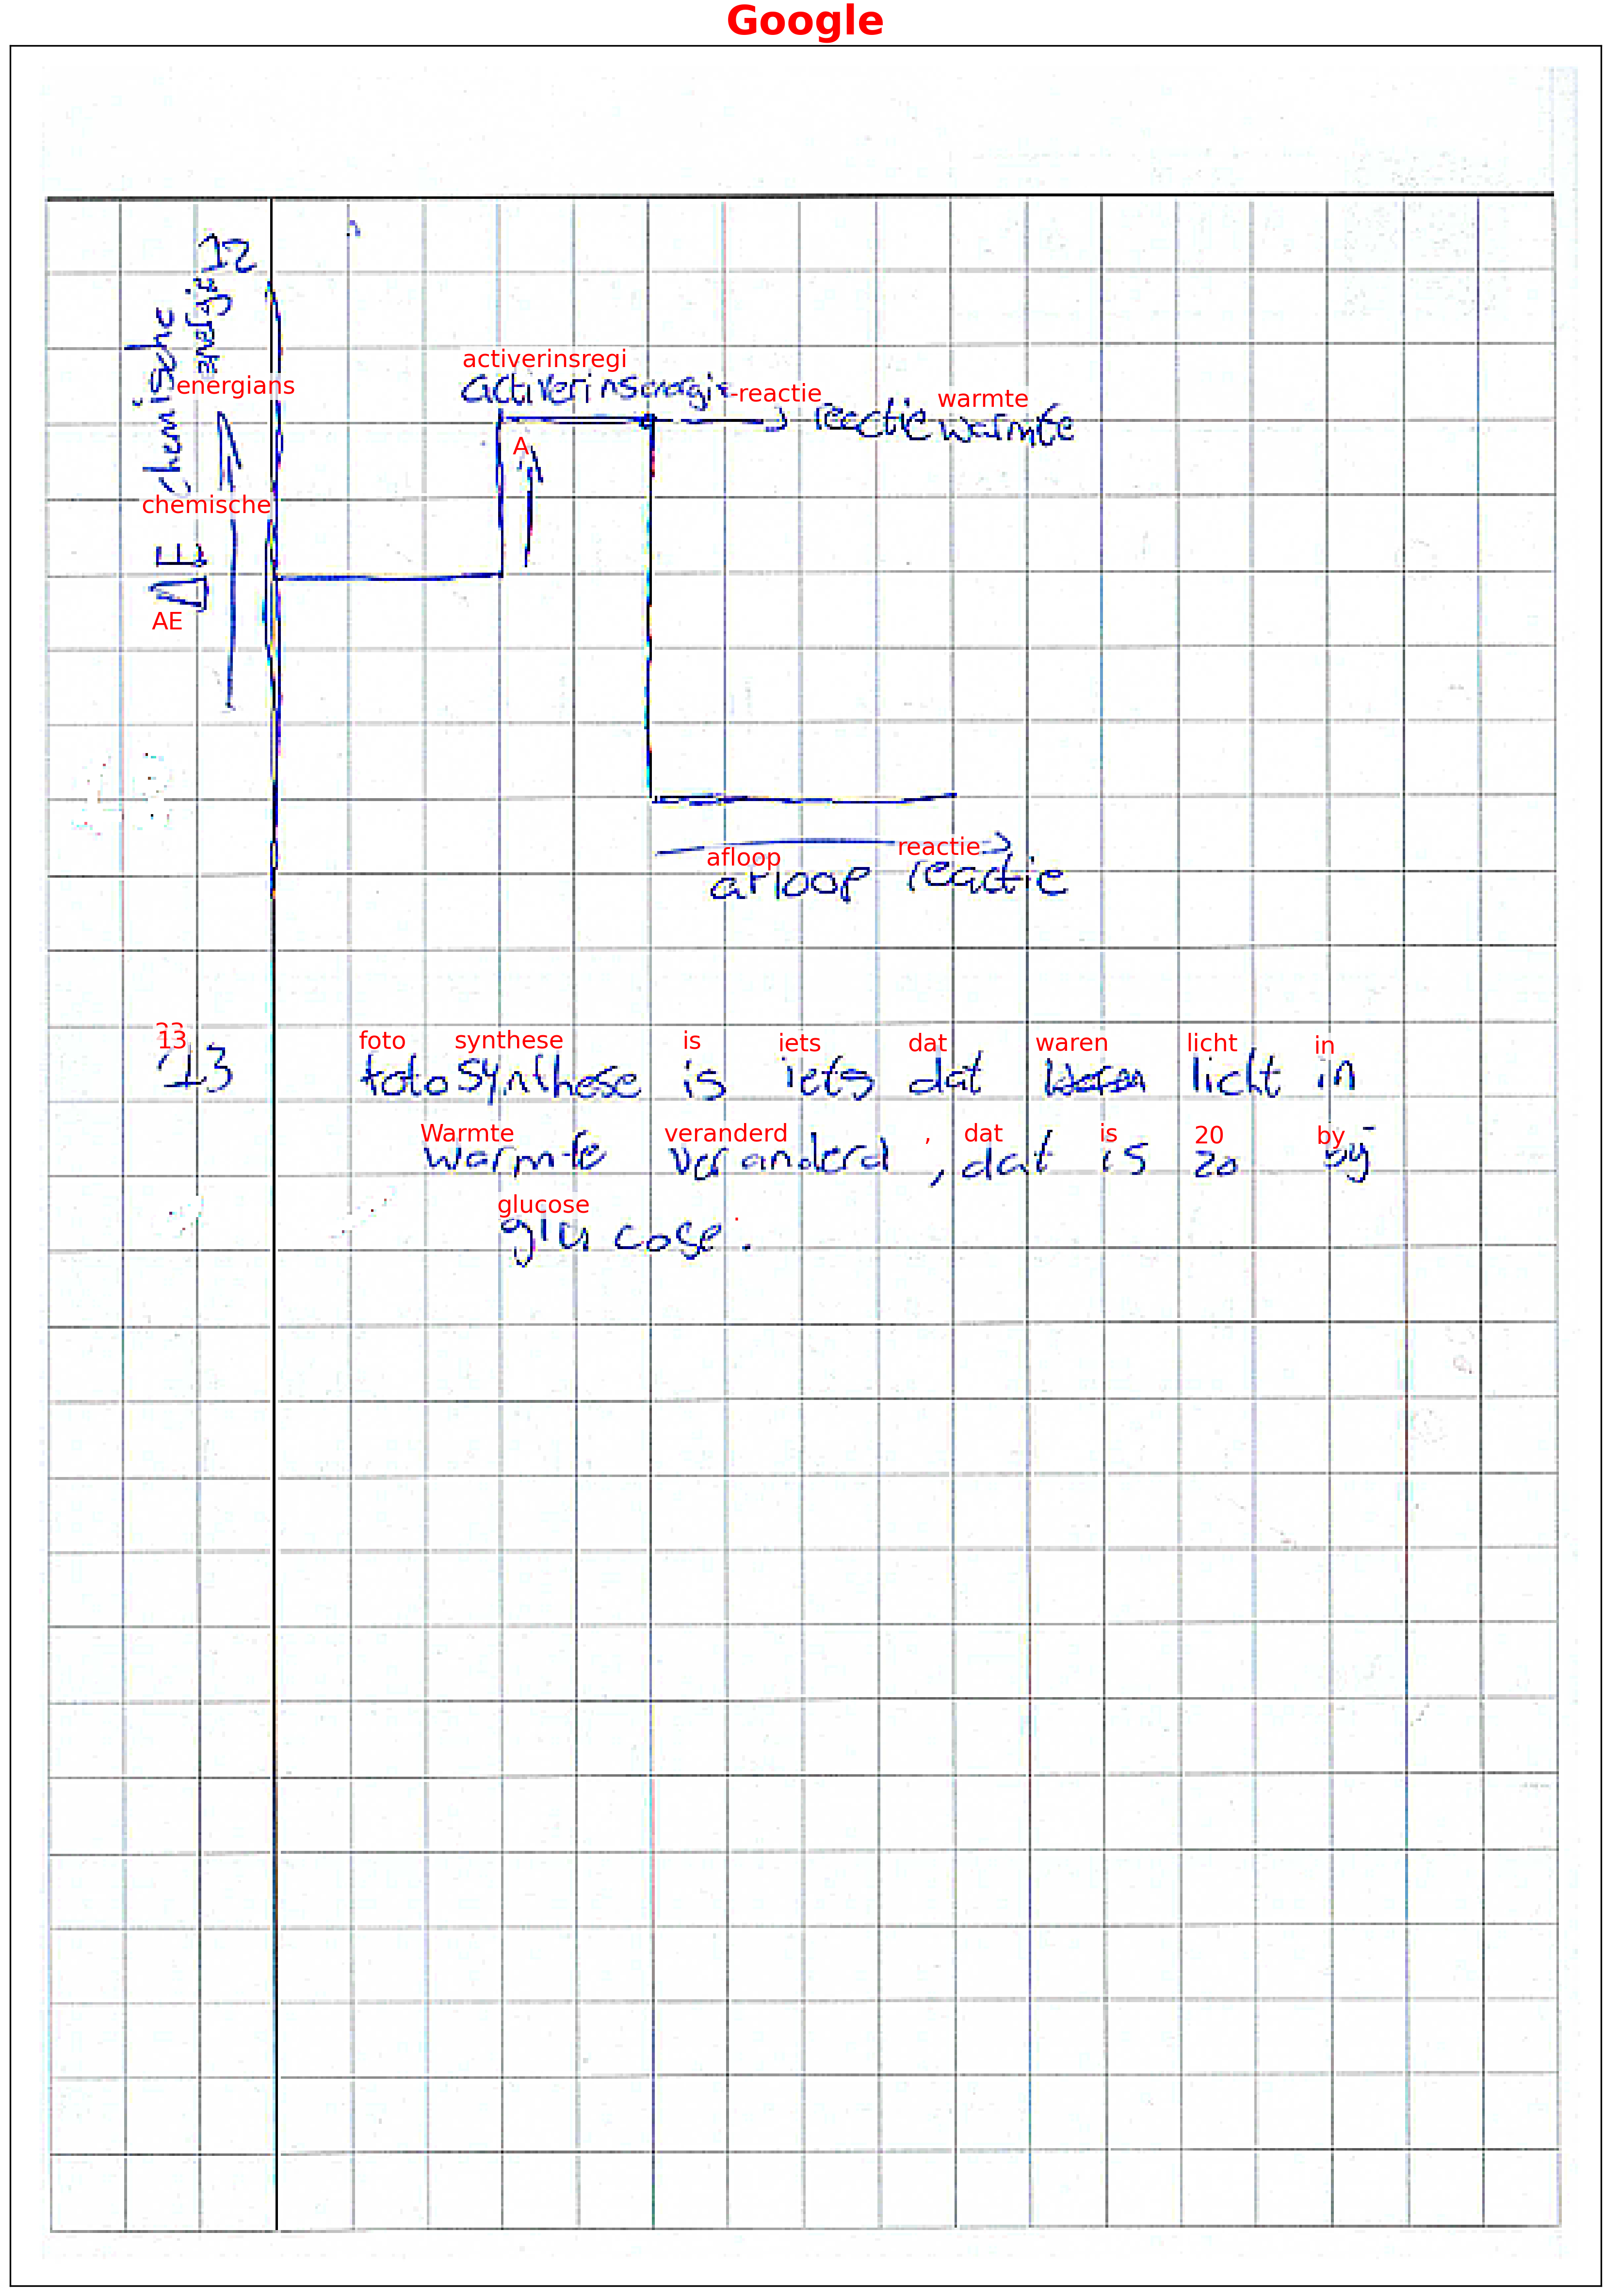 Google
12
chemische
energie
energians
activerinsregi
activerinsenergie
-reactie warmte
reactie warmte
A
chemische
ΔE
AE
afloop reactie
afloop reactie
23
13
foto synthese is iets dat waren licht in
13 fotosynthese is iets dat licht in
Warmte veranderd , dat is 20 by
warmte veranderd , dat is zo bij
glucose .
glucose.